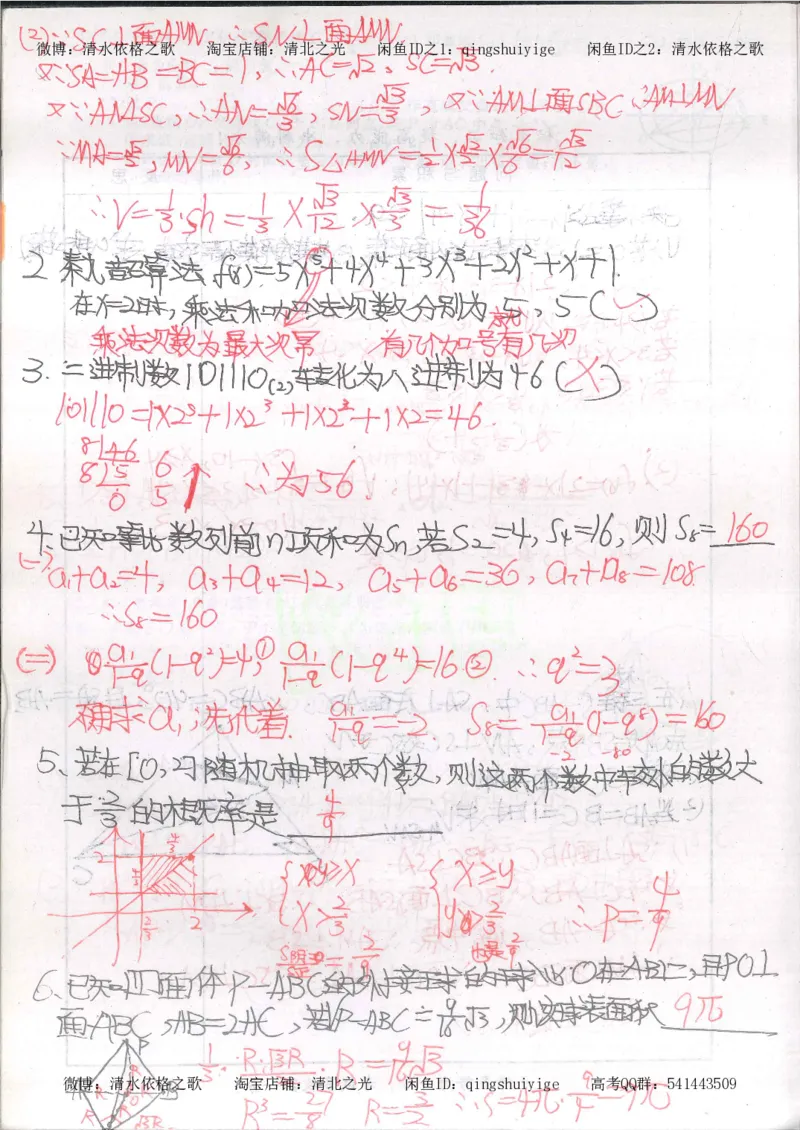 (2)∵SC⊥面AMN,∴SN⊥面AMN
微博:清水依格之歌 淘宝店铺:清北之光 闲鱼ID之1:qingshuiyige 闲鱼ID之2:清水依格之歌
又∵SA=AB=BC=1,∴AC=√2,SC=√3.
又∵AN⊥SC,∴AN=√6/3,SN=√3/3,又∵AM⊥面SBC∴AM⊥MN
∵MA=√2/2,MN=√6/6,∴S△AMN=1/2×√2/2×√6/6=√3/12
∴V=1/3·Sh=1/3×√3/12×√3/3=1/36
2 秦九韶算法f(x)=5x⁵+4x⁴+3x³+2x²+x+1.
在x=2时,乘法和加法次数分别为5,5(✓)
乘法次数为最大次幂 有几个加号就有几次
3.二进制数101110(2)转化为八进制为46(×)
101110=1×2⁵+1×2³+1×2²+1×2=46.
8|46
8|5 6
0 5 ∴为56.
4、已知等比数列前n项和为Sn,若S2=4,S4=16,则S8=160
(一)a1+a2=4,a3+a4=12,a5+a6=36,a7+a8=108
∴S8=160
(二) a1/1-q(1-q²)=4,① a1/1-q(1-q⁴)=16② ∴q²=3
确求a1,先代着. a1/1-q=-2 S8=a1/1-q(1-q⁸)=160
-2 -80
5、若在[0,2]中随机抽取两个数,则这两个数中较小的数大
于2/3的概率是 4/9
2 4/3 4/3 2/3 2
{y≥x {x≥y
{x>2/3 {y>2/3 ∴P=4/9
S阴=2/9 也是2/9
6、已知四面体P-ABC的外接球的球心O在AB上,且PO⊥
面ABC,2AC=,若VP-ABC=9/16√3,则该球表面积9π
P
1/3·R·√3R·R=9/16√3
微博:清水依格之歌 淘宝店铺:清北之光 闲鱼ID:qingshuiyige 高考QQ群:541443509
R³=27/8 R=3/2 ∴S=4π·9/4=9π